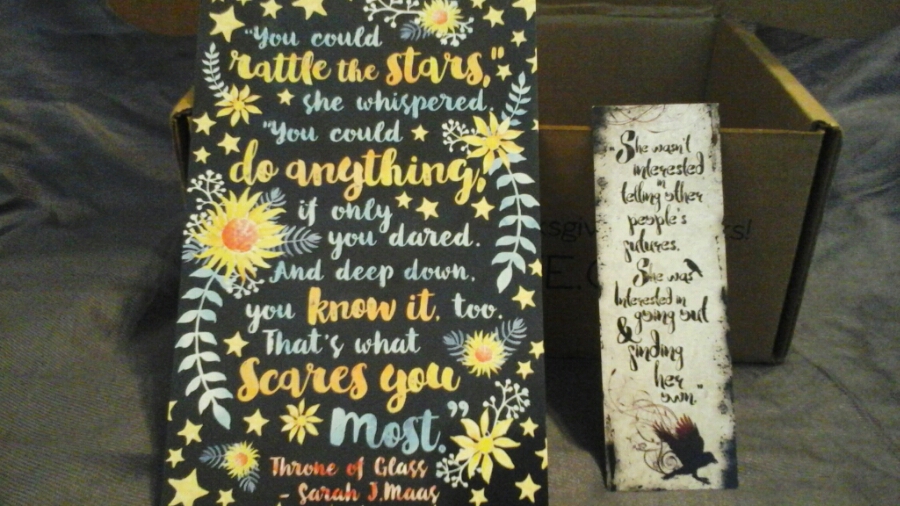 "You could
rattle the stars,"
she whispered.
"You could
do anything,
if only
you dared.
And deep down,
you know it, too.
That's what
Scares you
most."
Throne of Glass
- Sarah J.Maas
"She wasn't
interested
in
telling other
people's
futures.
She was
Interested in
going out
&
finding
her
own."